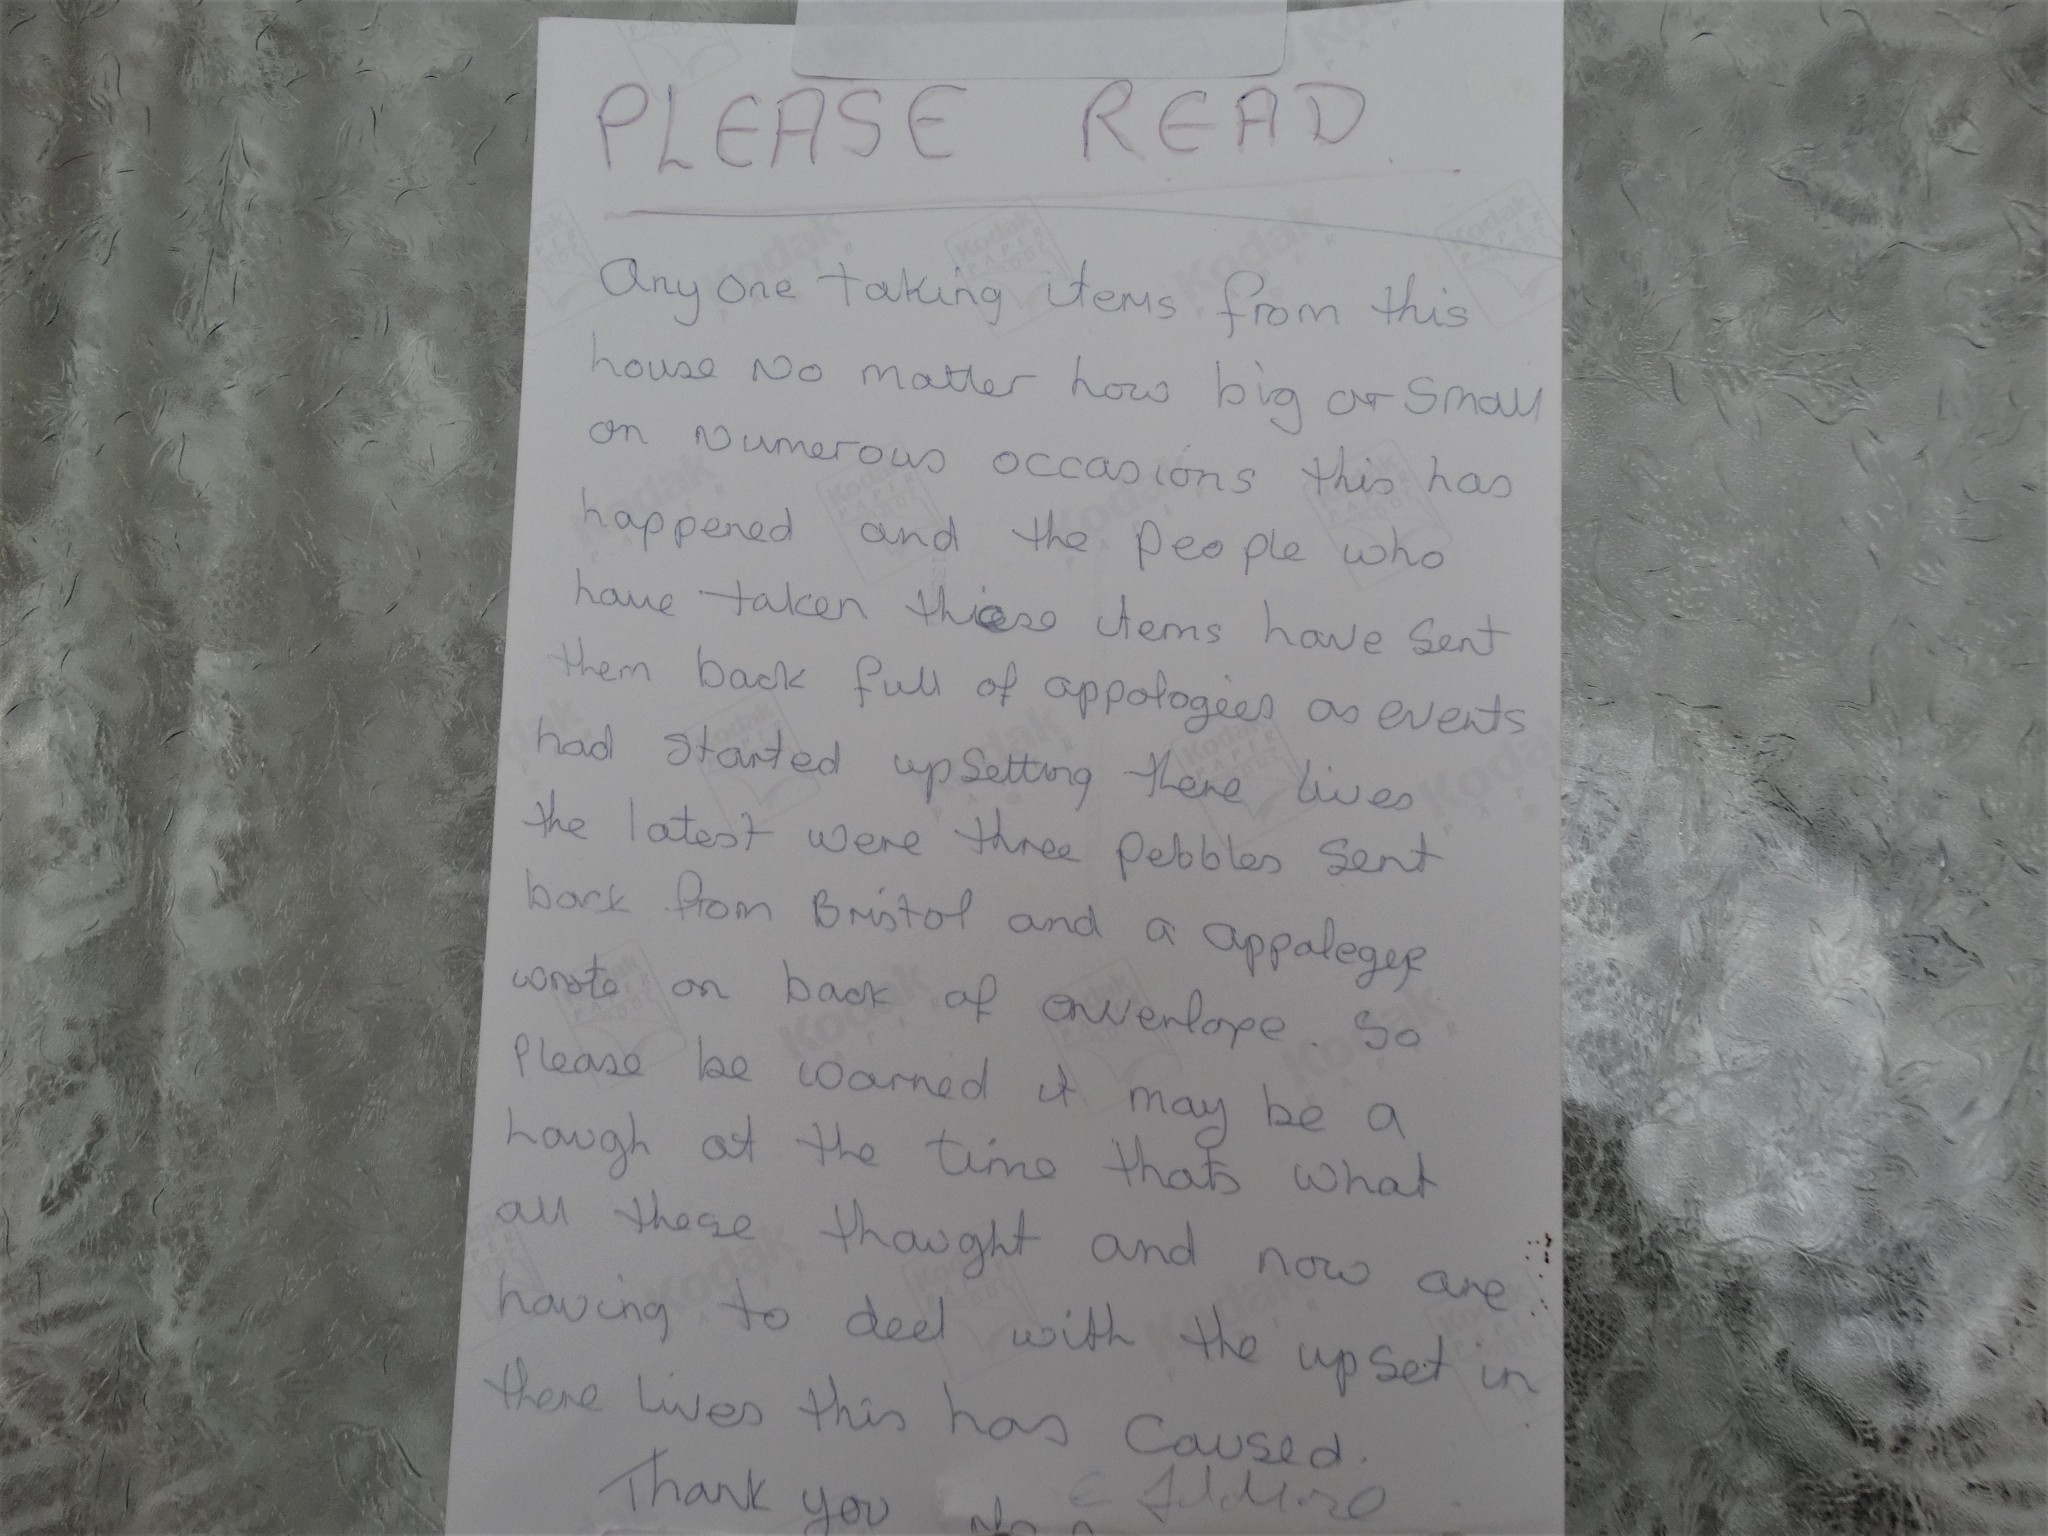 PLEASE READ.
Any one taking items from this
house No matter how big or Small
on Numerous occasions this has
happened and the People who
have taken these items have Sent
them back full of appologies as events
had started upsetting there lives
the latest were three Pebbles Sent
back from Bristol and a appalegee
wrote on back of onverlope. So
Please be warned it may be a
haugh at the time thats what
all these thought and now are
having to deel with the upset in
there lives this has Caused.
Thank you